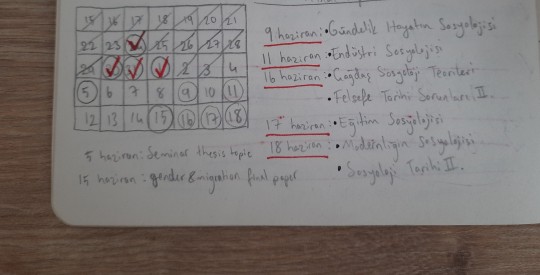 15 16 17 18 19 20 21
22 23 24 25 26 27 28
29 2 3 4
5 6 7 8 9 10 11
12 13 14 15 16 17 18
9 haziran: • Gündelik Hayatın Sosyolojisi
11 haziran: • Endüstri Sosyolojisi
16 haziran: • Çağdaş Sosyoloji Teorileri
• Felsefe Tarihi Sorunları II.
17 haziran: • Eğitim Sosyolojisi
18 haziran: • Modernliğin Sosyolojisi
• Sosyoloji Tarihi II.
5 haziran: Seminar thesis topic
15 haziran: gender & migration final paper